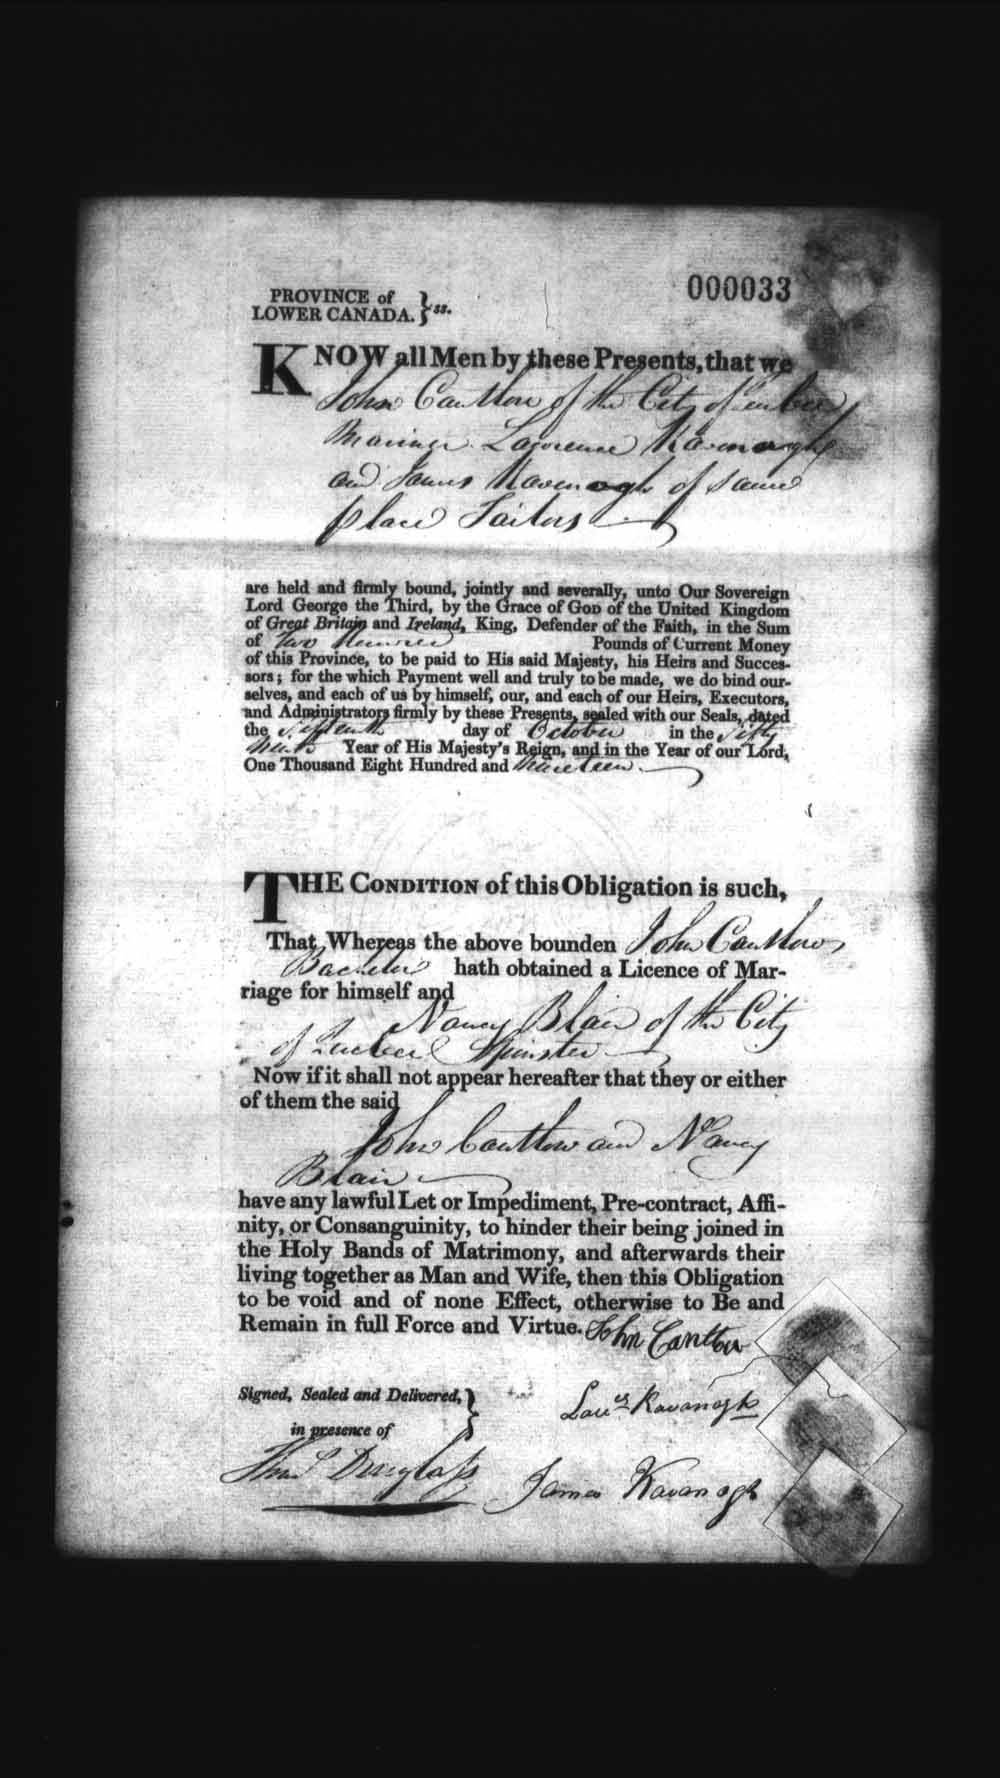 000033
PROVINCE of
LOWER CANADA. } ss.
KNOW all Men by these Presents, that we
John Cantlow of the City of Quebec
Mariner Lawrence Kavanagh
and James Kavenagh of same
place Tailors
are held and firmly bound, jointly and severally, unto Our Sovereign
Lord George the Third, by the Grace of GOD of the United Kingdom
of Great Britain and Ireland, King, Defender of the Faith, in the Sum
of Two Hundred Pounds of Current Money
of this Province, to be paid to His said Majesty, his Heirs and Succes-
sors; for the which Payment well and truly to be made, we do bind our-
selves, and each of us by himself, our, and each of our Heirs, Executors,
and Administrators firmly by these Presents, sealed with our Seals, dated
the fifteenth day of October in the fifty
ninth Year of His Majesty's Reign, and in the Year of our Lord,
One Thousand Eight Hundred and Nineteen.
THE CONDITION of this Obligation is such,
That Whereas the above bounden John Cantlow
Bachelor hath obtained a Licence of Mar-
riage for himself and
Nancy Blair of the City
of Quebec Spinster
Now if it shall not appear hereafter that they or either
of them the said
John Cantlow and Nancy
Blair
have any lawful Let or Impediment, Pre-contract, Affi-
nity, or Consanguinity, to hinder their being joined in
the Holy Bands of Matrimony, and afterwards their
living together as Man and Wife, then this Obligation
to be void and of none Effect, otherwise to Be and
Remain in full Force and Virtue. John Cantlow
Signed, Sealed and Delivered, }
Lau.ce Kavanagh
in presence of
Thos Douglass
James Kavanagh